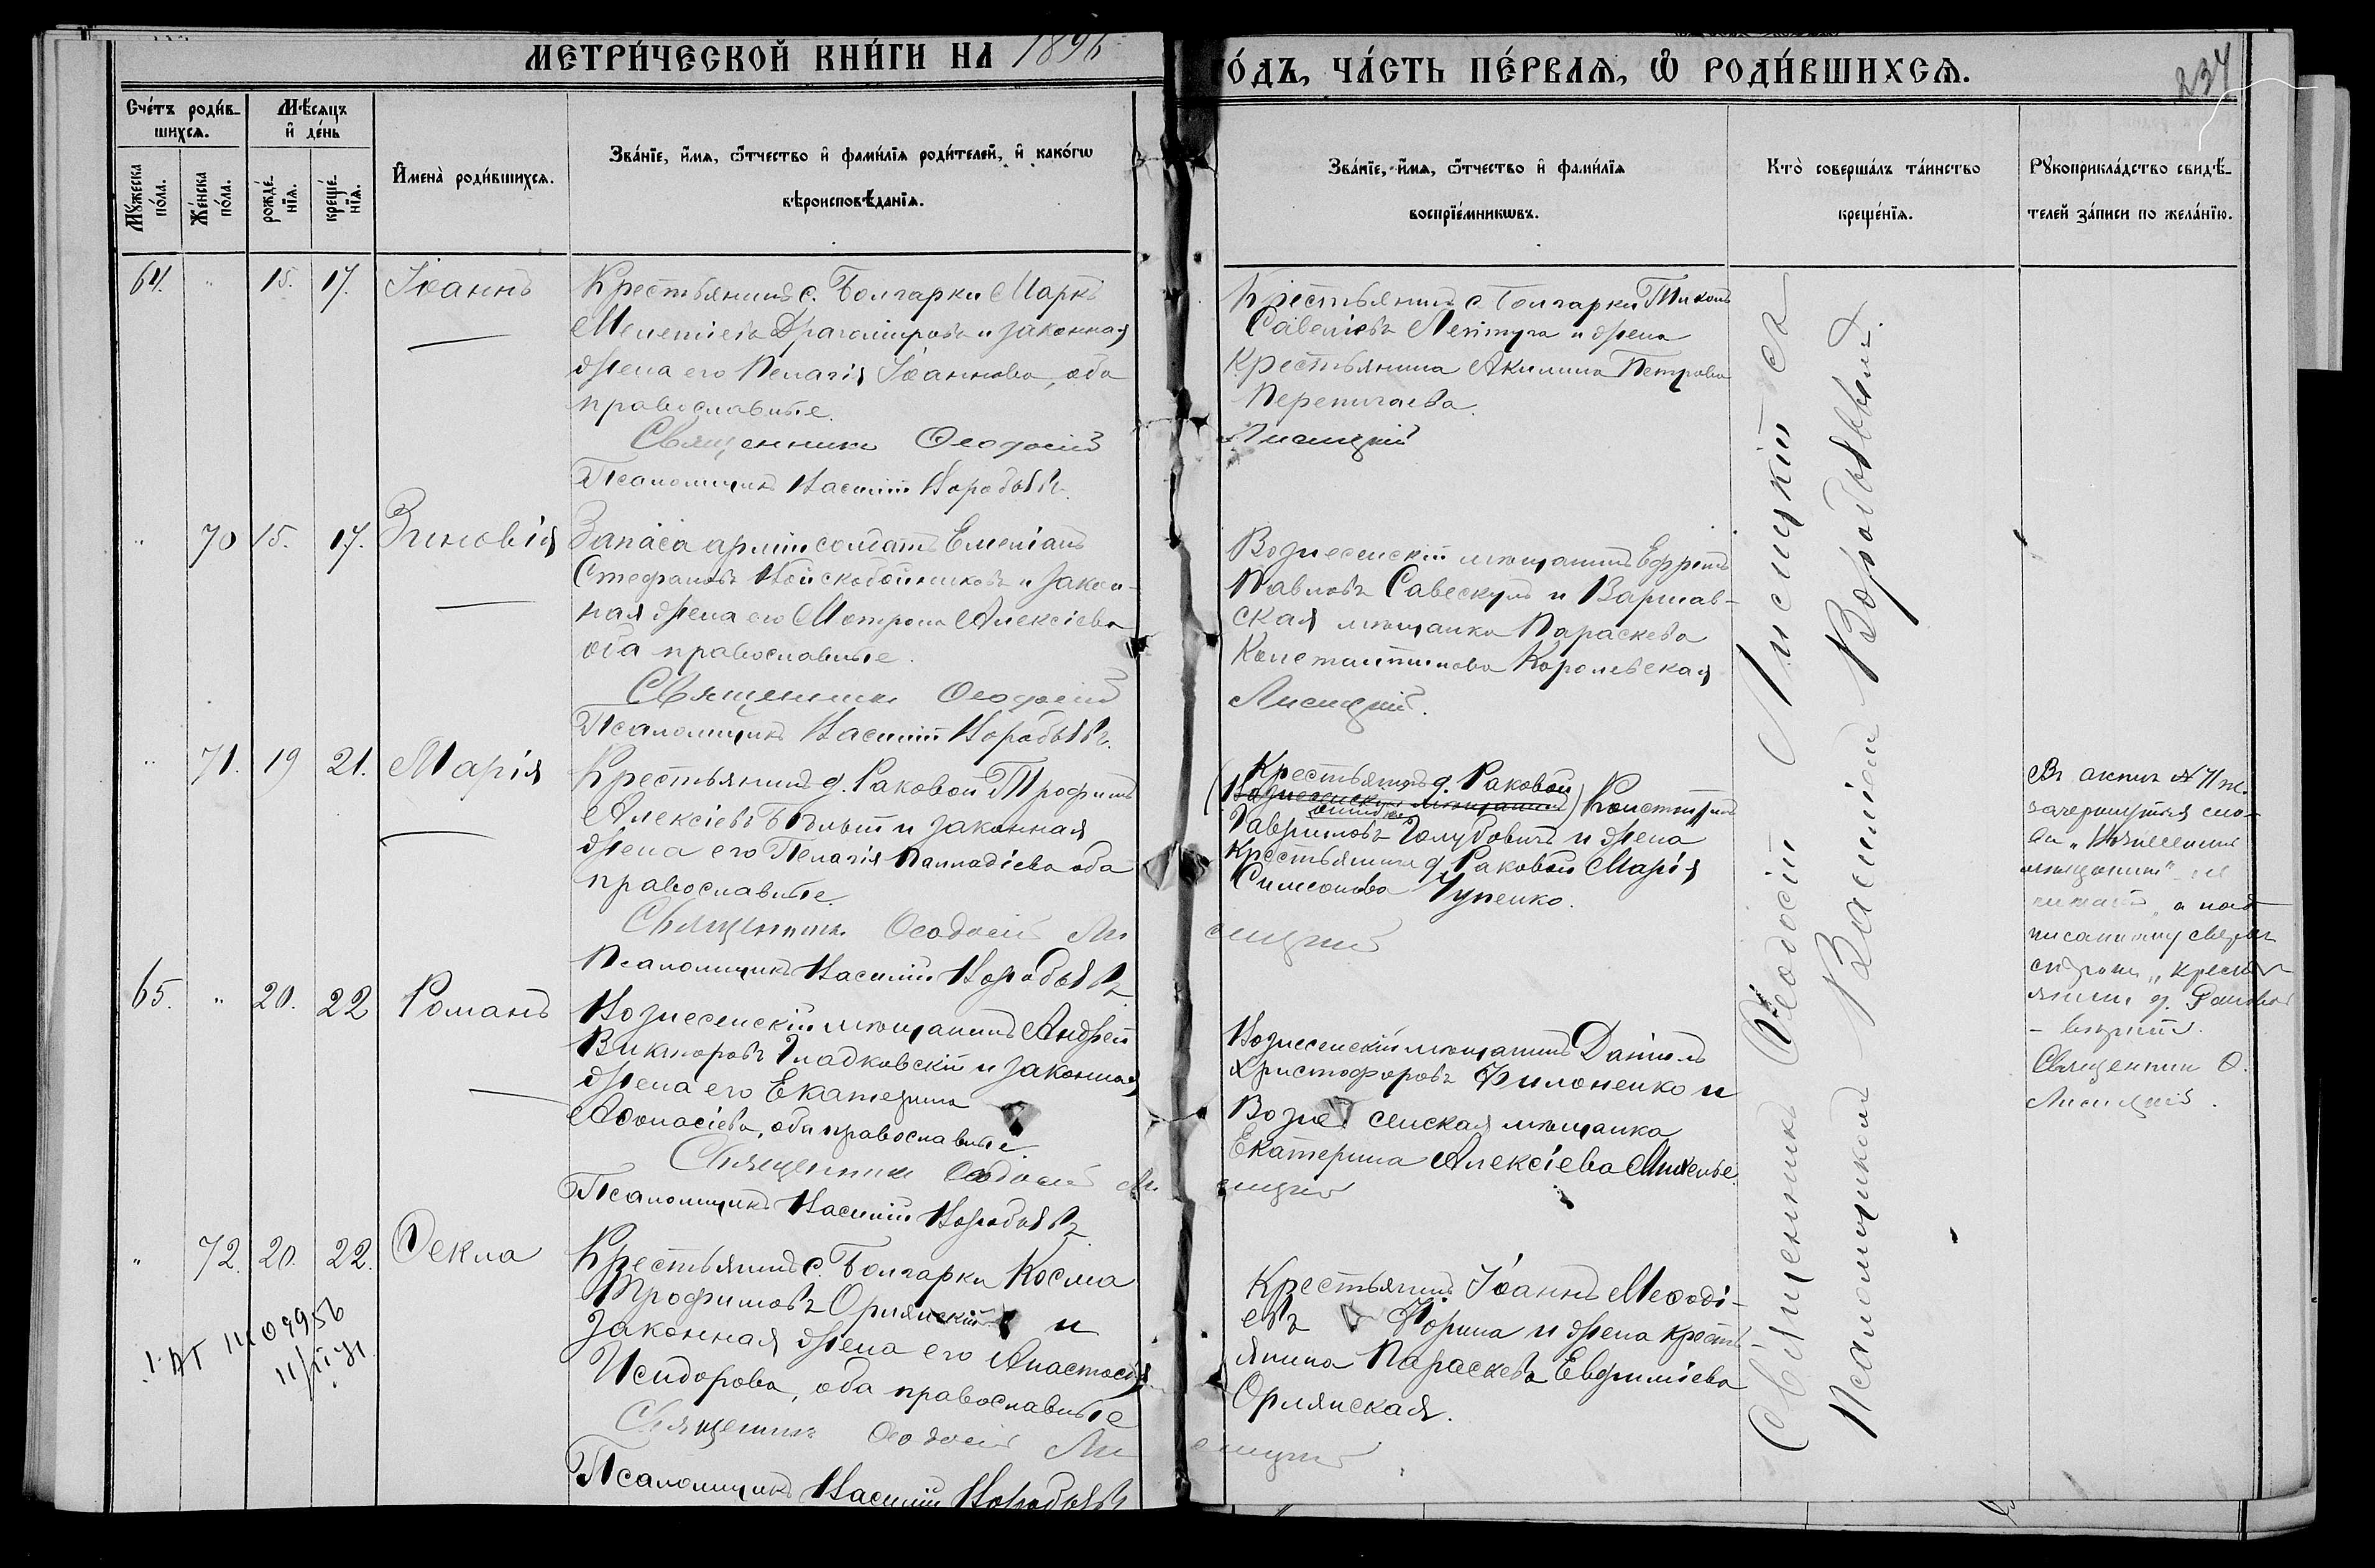 МЕТРИ́ЧЕСКОЙ КНИ́ГИ НА 1896
О́ДЪ, ЧА́СТЬ ПЕ́РВАЯ, Ѡ РОДИ́ВШИХСЯ.
234
Сче́тъ роди́в-
шихся.
Мѣ́сяцъ
и де́нь
Му́жеска
по́ла.
Же́нска
по́ла.
рожде́-
нїя.
креще́-
нїя.
Имена̀ роди́вшихся.
Зва́нїе, и́мя, ѻ҆́тчество и фами́лїя роди́телей, и како́гѡ
вѣроисповѣ́данїя.
Зва́нїе, и́мя, ѻ҆́тчество и фами́лїя
воспрїе́мниковъ.
Кто̀ соверша́лъ та́инство
креще́нїя.
Рукоприкла́дство свидѣ́-
телей за́писи по жела́нїю.
64. " 15. 17. Іоаннъ
Крестьянинъ с. Болгарки Маркъ
Мелетіевъ Драгомировъ и законная
жена его Пелагія Іоаннова, оба
православные.
Священникъ Ѳеодосій
Псаломщикъ Василій Воробьёвъ.
Крестьянинъ с. Болгарки Тихонъ
Савеліевъ Лептуга и жена
Крестьянина Акилина Петрова
Перепичаева.
Лисицкій
" 70 15. 17. Зиновія
Запаса арміи солдатъ Емеліанъ
Стефановъ Войскобойниковъ и закон-
ная жена его Мотрона Алексіева
оба православные.
Священникъ Ѳеодосій
Псаломщикъ Василій Воробьёвъ.
Вознесенскій мѣщанинъ Ефремъ
Павловъ Савескулъ и Варшав-
ская мѣщанка Параскева
Константинова Корольвская
Лисицкій.
" 71. 19 21. Марія
Крестьянинъ д. Раковой Трофимъ
Алексіевъ Бѣлый и законная
жена его Пелагія Палладіева оба
православные.
Священникъ Ѳеодосій Ли
Псаломщикъ Василій Воробьёвъ
Крестьянинъ д. Раковой
(Вознесенскій мѣщанинъ) Константинъ
Гавриловъ Голубовичъ и жена
Крестьянина д. Раковой Марія
Симеонова Чупенко.
сицкій
Въ актѣ № 71 ж.
зачеркнутыя сло-
ва „Вознесенскій
мѣщанинъ" не
читать, а над-
писанному сверхъ
строки „кресть-
янинъ д. Раковой
- вѣрить.
Священникъ Ѳ.
Лисицкій.
65. " 20. 22 Романъ
Вознесенскій мѣщанинъ Андрей
Викторовъ Гладковскій и законная
жена его Екатерина
Аѳонасіева, оба православные.
Священникъ Ѳеодосій Ли
Псаломщикъ Василій Воробьёвъ
Вознесенскій мѣщанинъ Даніилъ
Христофоровъ Филоненко и
Вознесенская мѣщанка
Екатерина Алексіева
сицкій
" 72. 20. 22. Ѳекла
Крестьянинъ с. Болгарки Косма
Трофимовъ Орлянскій и
законная жена его Анастасія
Исидорова, оба православные
Священникъ Ѳеодосій Ли
Псаломщикъ Василій Воробьёвъ
Крестьянинъ Іоаннъ Меѳоді-
евъ Норина и жена кресть-
янина Параскева Евфиміева
Орлянская.
сицкій
Священникъ Ѳеодосій Лисицкій съ
Псаломщикомъ Василіемъ Воробьёвымъ.